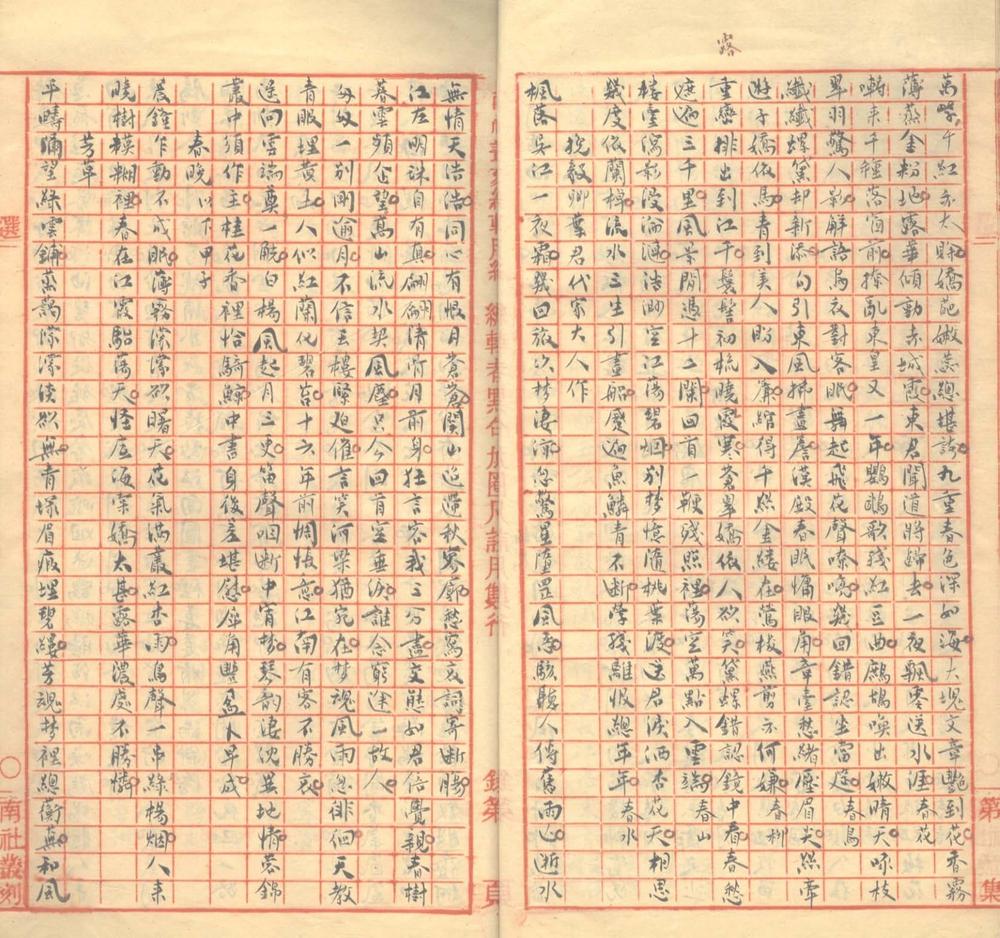 露
萬紫千紅亦太賒嬌葩嫩蕊總堪誇九重春色深如海大塊文章艷到花香霧
薄蒸金粉地露華傾動赤城霞東君聞道將歸去一夜飄零送水涯春花
啼來千種落窗前撩亂東皇又一年鸚鵡歌殘紅豆曲鷓鴣喚出嫩晴天咏枝
翠羽驚人夢解語烏衣對客眠無起飛花聲嘹喨幾回錯認坐當筵春鳥
纖纖螺黛却新添勾引東風拂畫簷漢殿春眠慵眼角章臺愁緒壓眉尖縈牽
遊子嬌依馬青到美人盼入簾綰得千絲金縷在鶯梭燕剪亦何嫌春柳
重巒排出到江干鬟髻初梳曉霞寒蒼翠嬌依人欲笑黛螺錯認鏡中看春愁
遮遍三千里風景閒憑十二闌回首一鞭殘照裡蕩空萬點入雲端春山
樓臺瀉影沒淪漪浩渺空江蕩碧烟別夢憶隨桃葉渡送君淚洒杏花天相思
幾度依闌檻流水三生引畫船蹙遍魚鱗青不斷芳殘離恨總年年春水
挽毅卿葉君代家大人作
楓落吳江一夜霜幾回旅次梦淒涼忽驚星墮罡風急駭聽人傳舊雨心逝水
無情天浩浩同心有恨月蒼蒼關山迢遞秋寥廓愁寫哀詞寄斷腸
江左明珠自有真翩翩清河月前身狂言容我三分盡文熊如君倍覺親春樹
暮雲頻企望高山流水契風塵只今回首空垂淚誰念窮途一故人
匆匆一別剛逾月不信玉樓緊迫催言笑河梁猶宛在梦魂風雨忽徘徊天教
青眼埋黃土人似紅蘭化碧苔十六年前惆悵意江南有客不勝哀
遙向雲端奠一觥白楊風起月三更笛聲咽斷中宵梦琴韵淒沈異地情蓉錦
叢中須作主桂花香裡恰騎鯨中書身後差堪慰犀角豐盈卜早成
春晚以下甲子
晨鐘乍動不成眠薄霧濛濛欲曙天花氣滿叢紅杏雨鳥聲一串綠楊烟人来
曉樹模糊裡春在江霞駘蕩天怪底海棠嬌太甚露華濃處不勝憐
芳草
平疇晒望綠雲鋪萬鞠濛濛淡欲無青塚眉痕埋碧縷芳魂梦裡總蘅蕪和風
選
南社叢刻
第
集